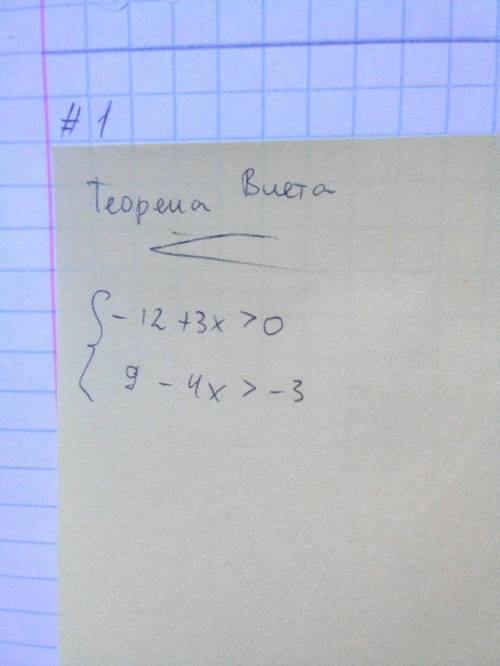 # 1
Теорема Виета
{ -12 + 3x > 0
9 - 4x > -3